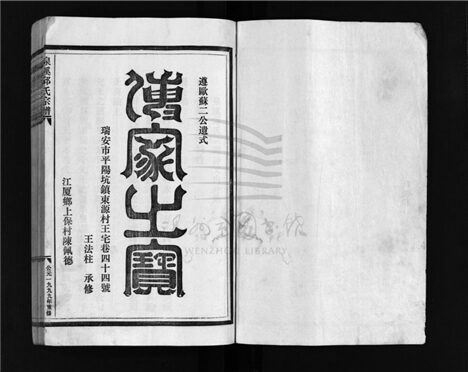 遵歐蘇二公遺式
傳家之寶
瑞安市平陽坑鎮東源村王宅巷四十四號
王法柱 承修
江厦鄉上保村陳佩德
溪郭氏宗譜
公元一九九九年重修
温州市图书馆
WENZHOU LIBRARY